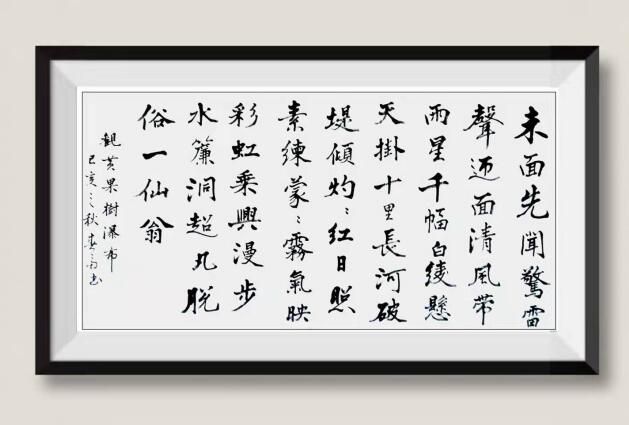 未面先聞驚雷
聲迎面清風帶
雨星千幅白綾懸
天掛十里長河破
堤傾灼〻紅日照
素練蒙〻霧氣映
彩虹乘興漫步
水簾洞超凡脫
俗一仙翁
觀黄果樹瀑布
己亥之秋春雨書